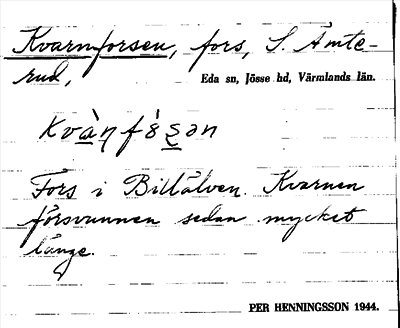 Kvarnforsen, fors, S. Ämte-
rud,
Eda sn, Jösse hd, Värmlands län.
kvàɳfòʂən
Fors i Billälven. Kvarnen
försvunnen sedan mycket
länge.
PER HENNINGSSON 1944.